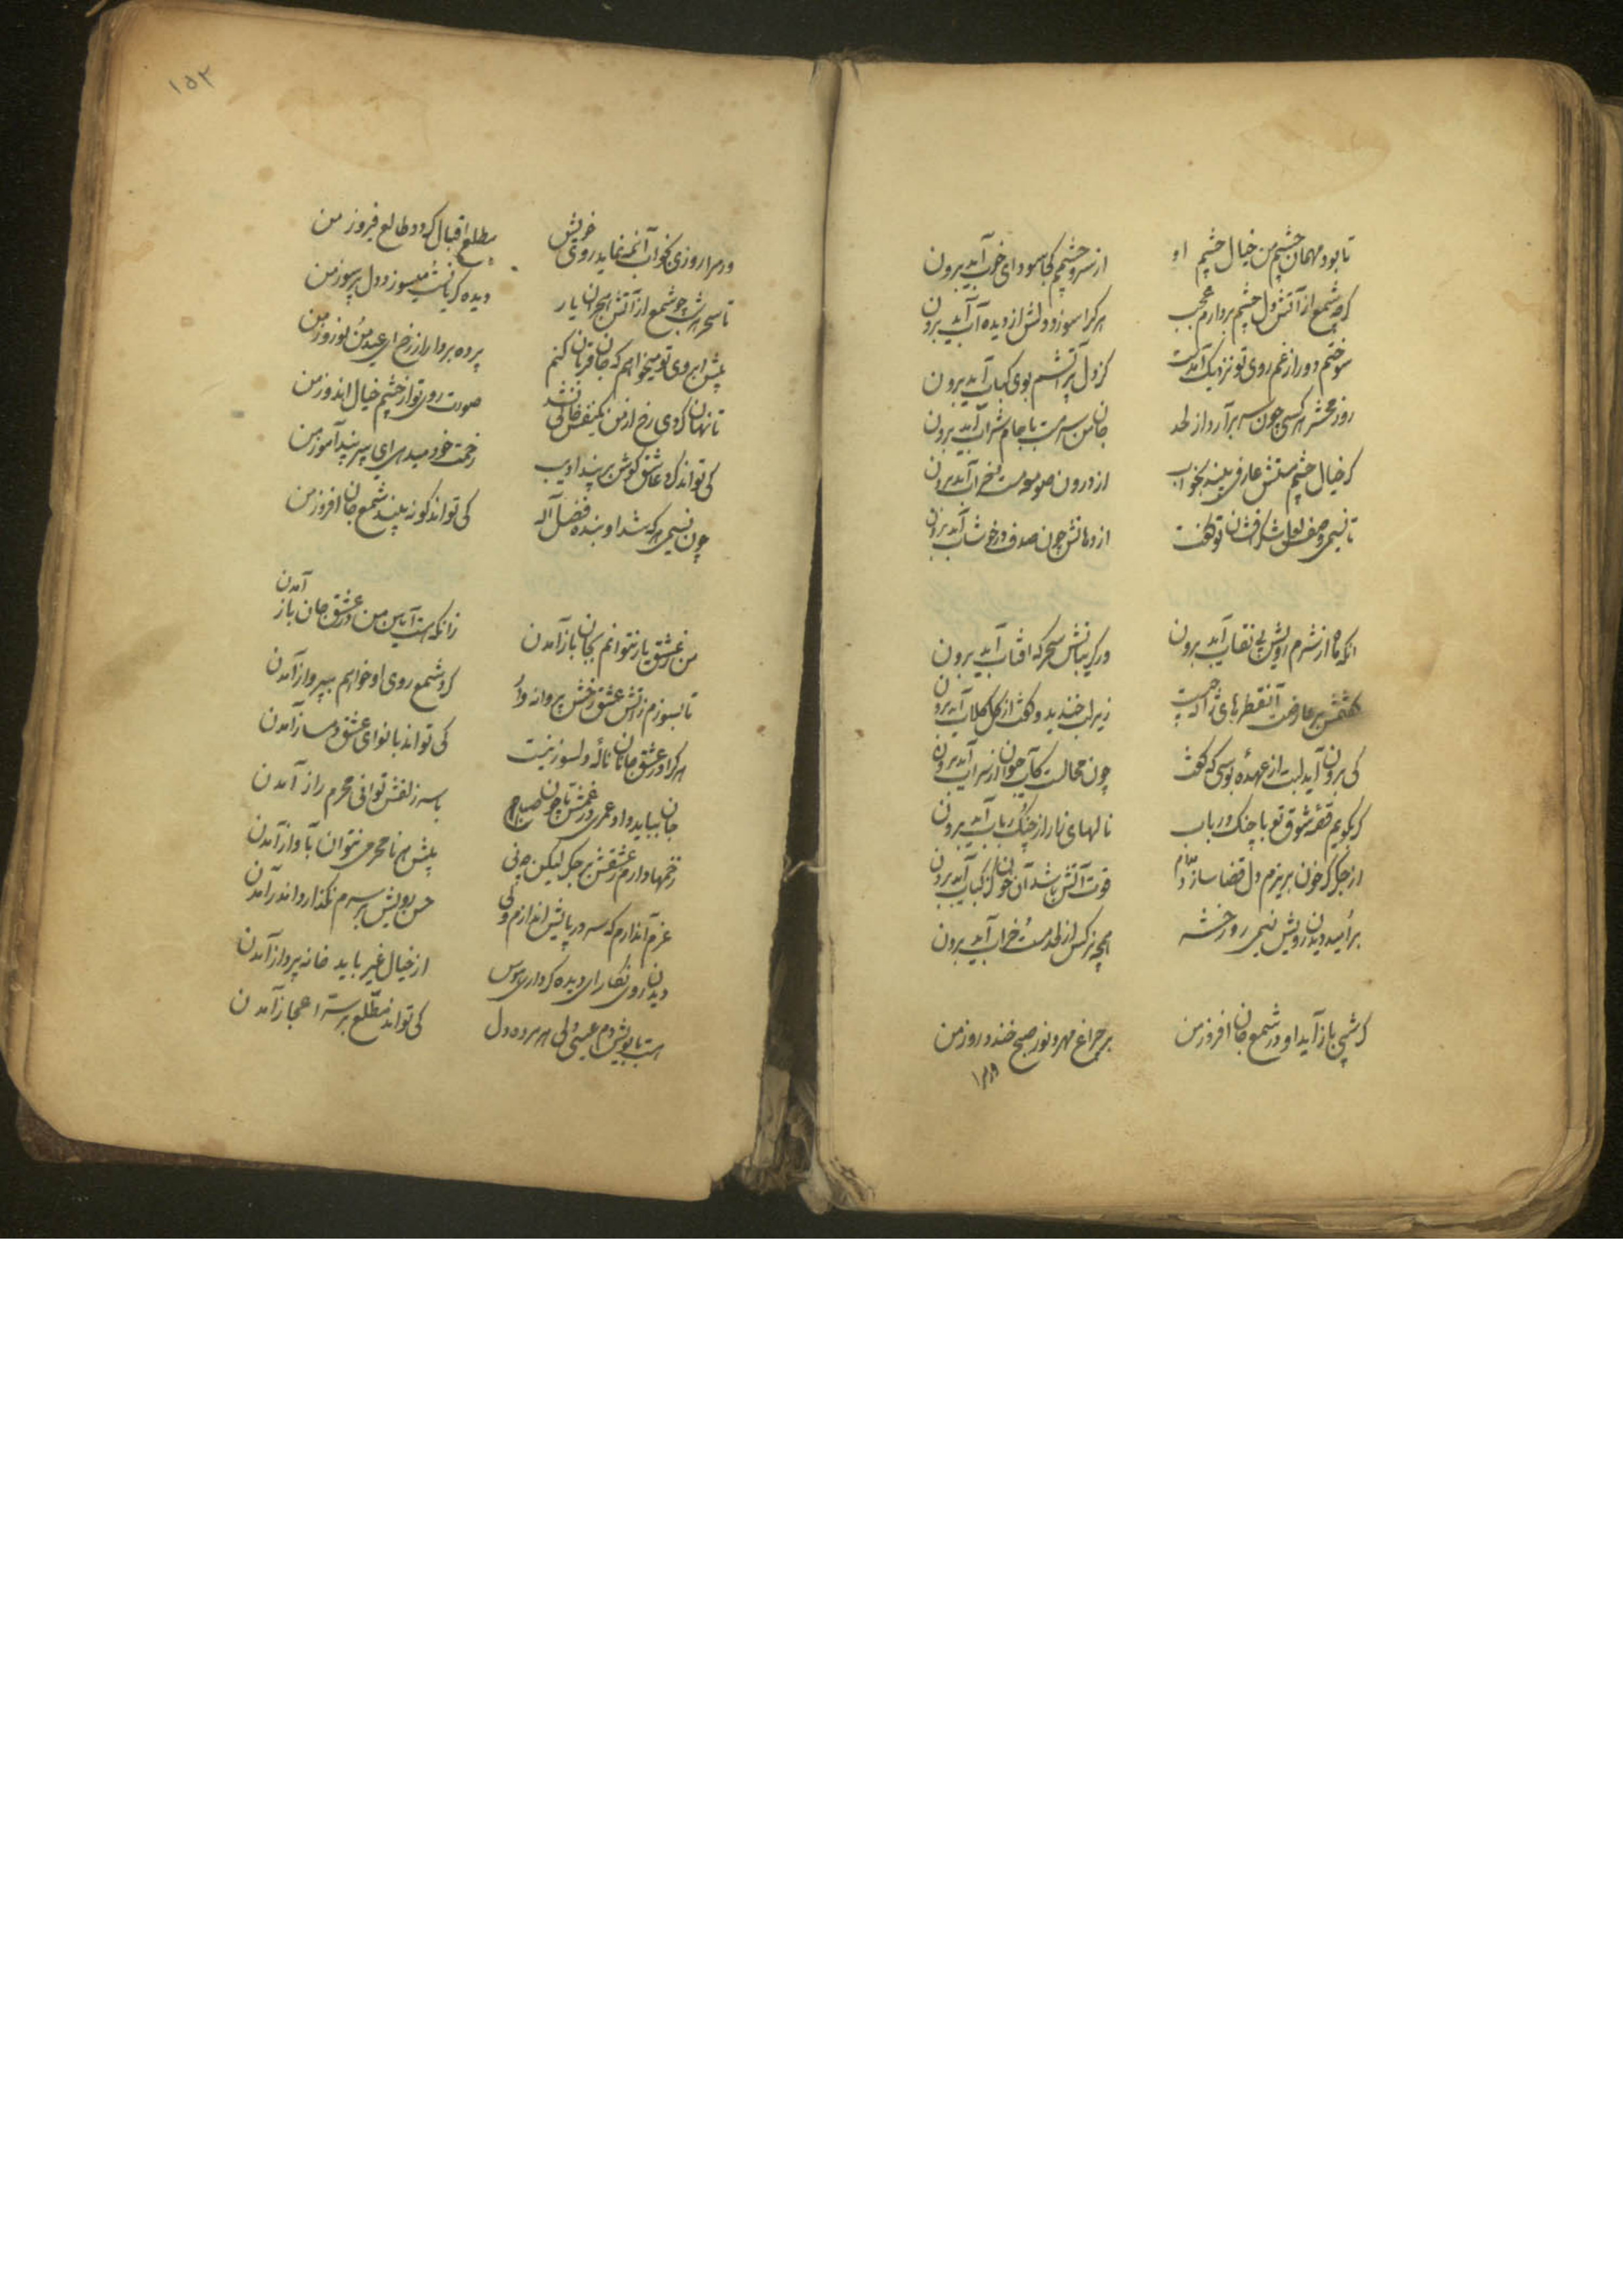 تا بود مهمان چشم من خیال چشم او    از سر و چشمم کجا سودای خواب آید برون
گر چو شمع از آتش دل چشم بردارم عجب    هر کرا سوزد دلش از دیده آب آید برون
سوختم دور از غم روی تو نزدیک آمدست    کز دل پر آتشم بوی کباب آید برون
روز محشر هر کسی چون سر برآرد از لحد    جان من سرمست با جام شراب آید برون
گر خیال چشم مستش عارفی بیند بخواب    از درون صومعه مست خراب آید برون
تا نسیمی وصف لعل شکرافشان تو گفت    از دهانش چون صدف در خوشاب آید برون
آنکه ماه از شرم رویش بی نقاب آید برون    ور کریبانش سحرکه افتاب آید برون
کفتمش بر عارضت آن قطرهای ژاله چیست    زیر لب خندید و کفت از کل کلاب آید برون
کی برون آید لبت از عهده بوسی که کفت    چون محالست کآب حیوان از سراب آید برون
کر بکویم قصه شوق تو با چنک و رباب    نالهای زار از چنک و رباب آید برون
از جکر کر خون بریزم دل قضا سازد مدام    قوت آتش باشد آن خون کز کباب آید برون
بر امید دیدن رویش نسیمی روز حشر    همچو نرکس از لحد مست خراب آید برون
کر شبی باز آید او در شمع جان افروز من    بر چراغ مهر و نور صبح خندد روز من
١٥٢
ور مرا روزی بخواب آن مه نماید روی خویش    مطلع اقبال کردد طالع فیروز من
تا سحر هر شب چو شمع از آتش هجران یار    دیده کریانست میسوزد دل پر سوز من
پیش ابروی تو میخواهم که جان قربان کنم    پرده بردار از رخ ای عید من نوروز من
تا نهان کردی رخ از من یکنفس خالی نشد    صورت روی تو از چشم خیال اندوز من
کی تواند کرد عاشق کوش بر پند ادیب    زحمت خود میدهی ای پیر پند آموز من
چون نسیمی هر که شد او بنده فضل آله    کی تواند کو نه بیند شمع جان افروز من
من ز عشق یار نتوانم بجان باز آمدن    زانکه هست آیین من در عشق جان باز آمدن
تا بسوزم ز آتش عشق رخش پروانه وار    کرد شمع روی او خواهم بپرواز آمدن
هر کرا در عشق جانان ناله دلسوز نیست    کی تواند با نوای عشق دمساز آمدن
جان بباید داد عمری در غمش تا چون صبا    با سر زلفش توانی محرم راز آمدن
زخمها دارم ز عشقش بر جکر لیکن چو نی    پیش هر نامحرمی نتوان بآواز آمدن
عزم آن دارم که سر در پایش اندازم ولی    حسن رویش بر سرم نکذارد اندر آمدن
دیدن روی نکار ای دیده کر داری هوس    از خیال غیر باید خانه پرداز آمدن
هست با بویش دم عیسی ولی هر مرده دل    کی تواند مطلع بر سر اعجاز آمدن